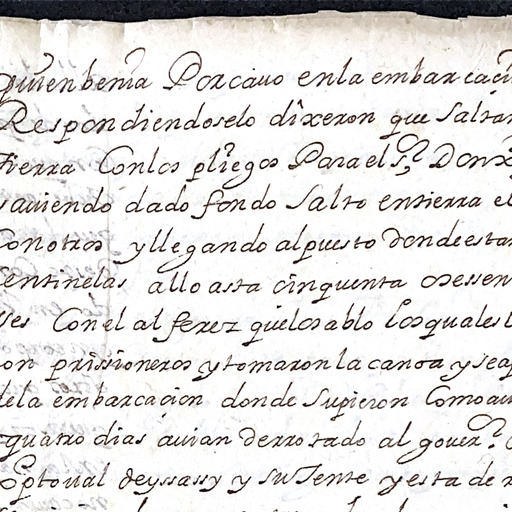 quien benia Por cavo en la embarcaçi
Respondiendoselo dixeron que Saltar
tierra Con los pliegos Para el s.r Don
y aviendo dado fondo Salto en tierra el
Con otros y llegando al puesto donde estan
Sentinelas allo asta cinquenta o sessen
ses Con el alferez que los ablo los quales l
on prissioneros y tomaron la canoa y se ap
dela embarcaçion donde Supieron Como av
quatro dias avian derrotado al gover.r
Xptoval de yssassy y su Jente y esta de